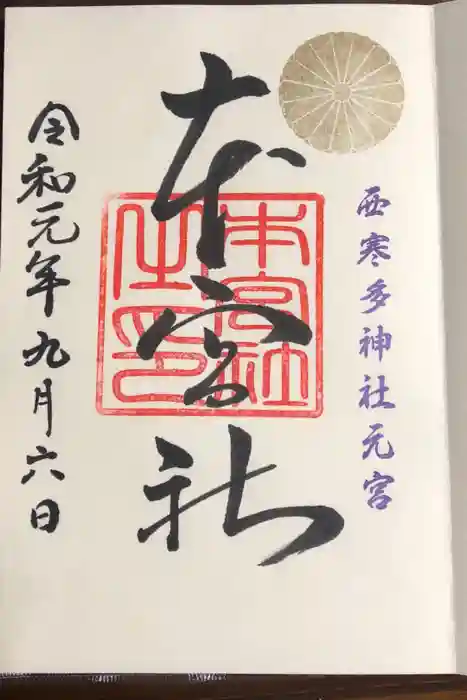 西寒多神社元宮
本宮社
本宮社之印
令和元年九月六日